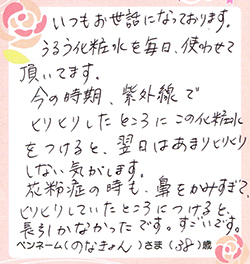 いつもお世話になっております。
うるう化粧水を毎日、使わせて
頂いてます。
今の時期、紫外線で
ヒリヒリしたところにこの化粧水
をつけると、翌日はあまりヒリヒリ
しない気がします。
花粉症の時も、鼻をかみすぎて、
ヒリヒリしていたところにつけると、
長引かなかったです。すごいです。
ペンネーム(のなきょん)さま(38)歳